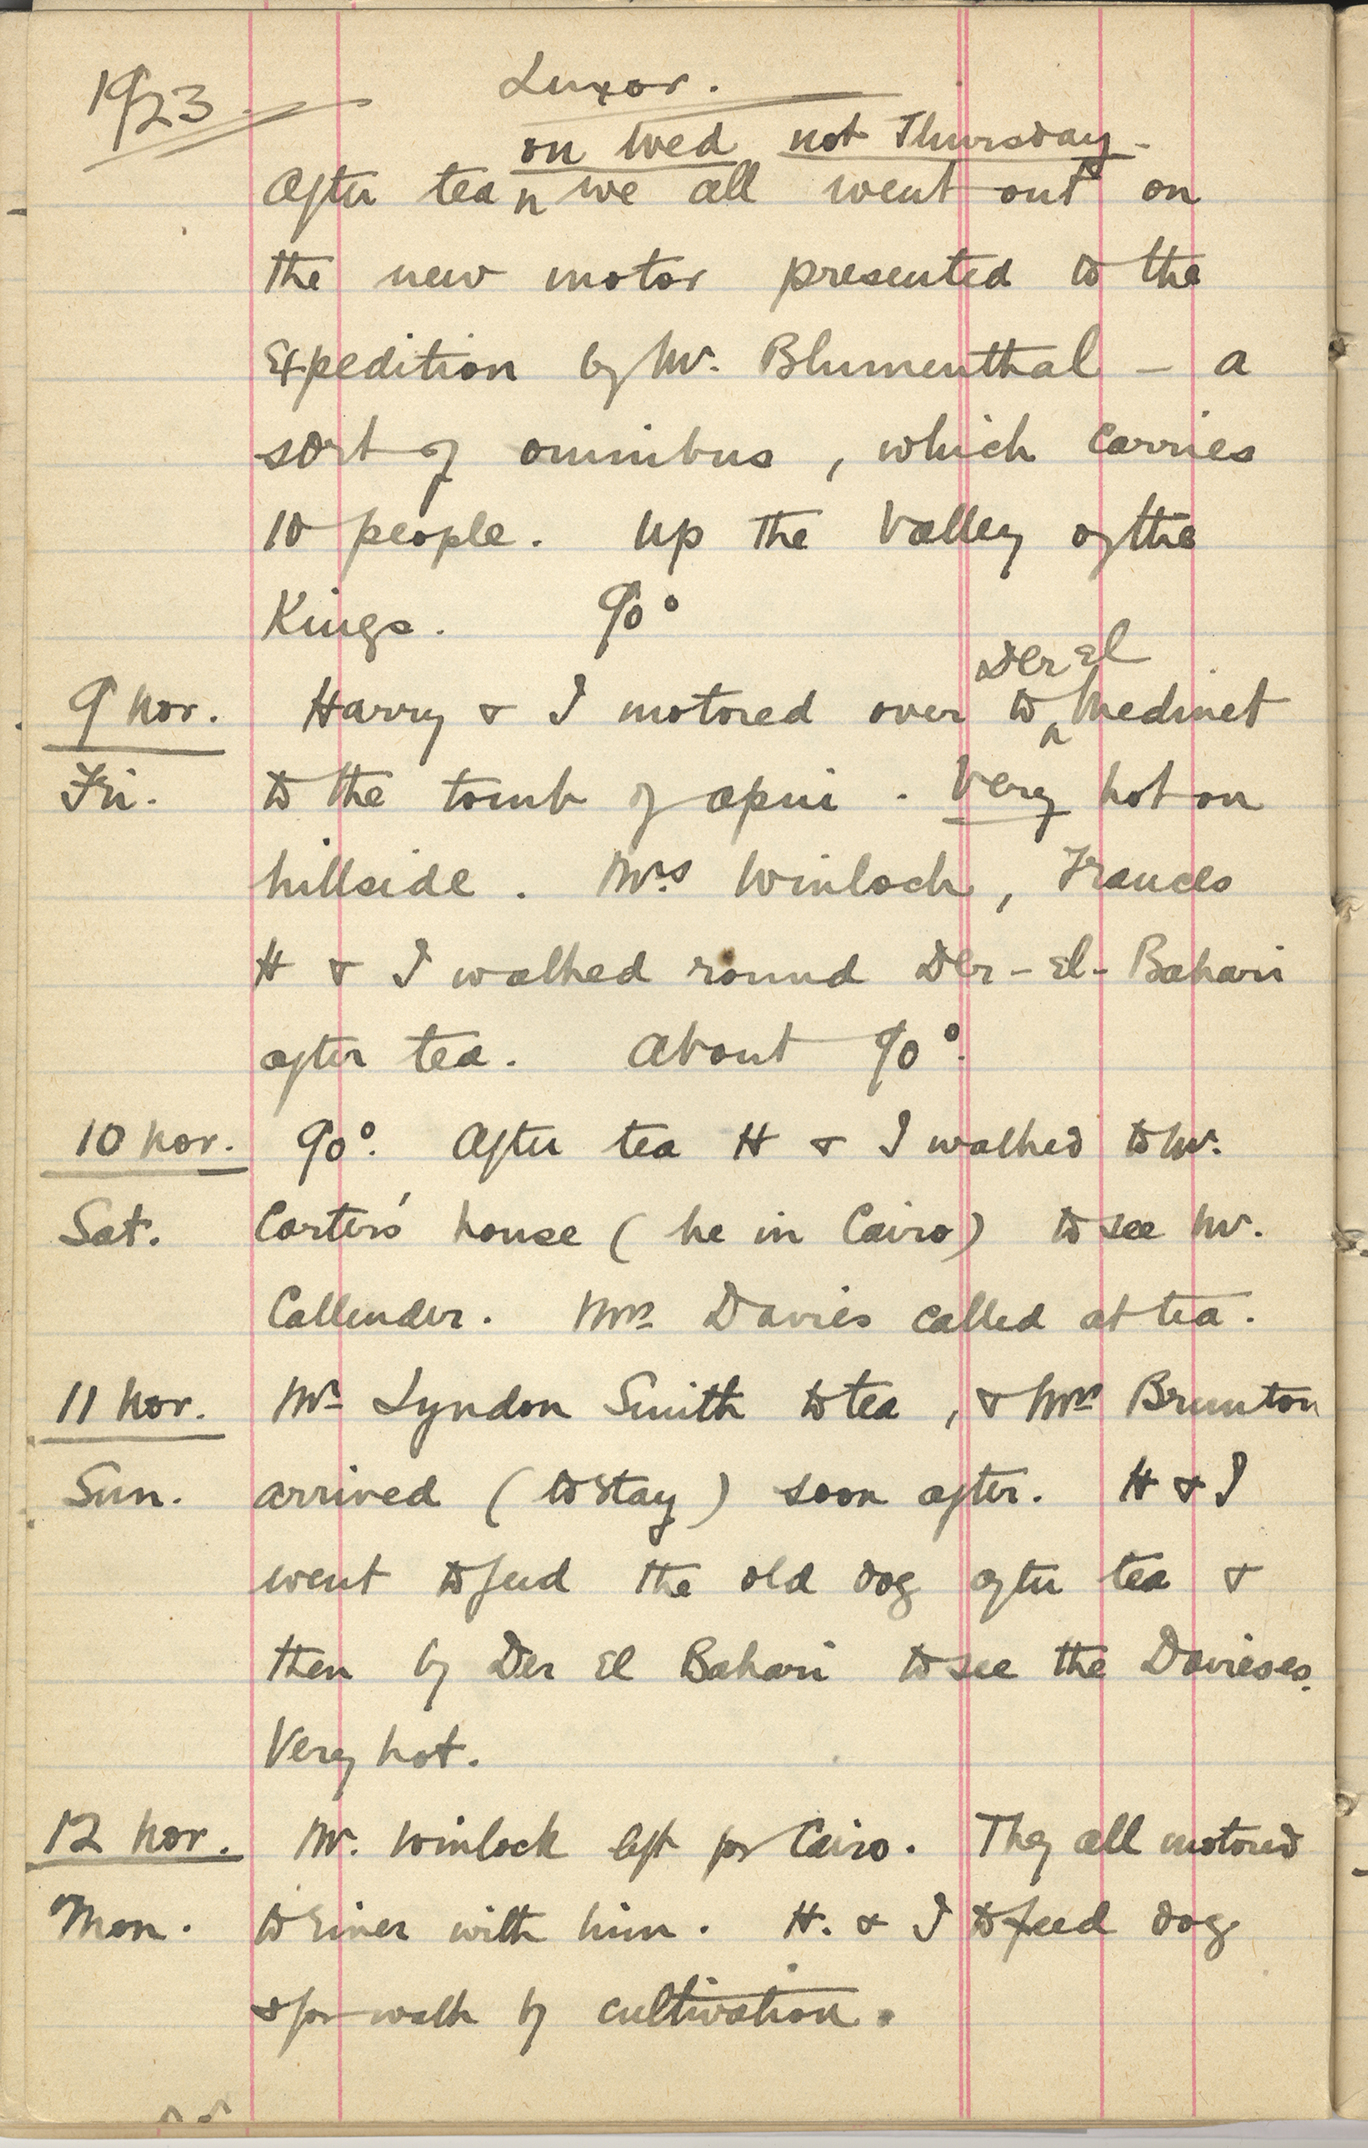 1923 Luxor.
on Wed not Thursday -
After tea we all went out on
the new motor presented to the
Expedition by Mr. Blumenthal - a
sort of omnibus, which carries
10 people. Up the Valley of the
Kings. 90°
Der El
9 Nov. Harry & I motored over to Medinet
Fri. to the tomb of Apui. Very hot on
hillside. Mrs Winlock, Frances
H & I walked round Der-El-Bahari
after tea. About 90°.
10 Nov. 90°. After tea H & I walked to Mr.
Sat. Carter's house (he in Cairo) to see Mr.
Callender. Mrs Davies called at tea.
11 Nov. Mr Lyndon Smith to tea, & Mrs Brunton
Sun. arrived (to stay) soon after. H & I
went to feed the old dog after tea &
then by Der El Bahari to see the Davieses.
Very hot.
12 Nov. Mr. Winlock left for Cairo. They all motored
Mon. to river with him. H. & I to feed dog
& for walk by cultivation.